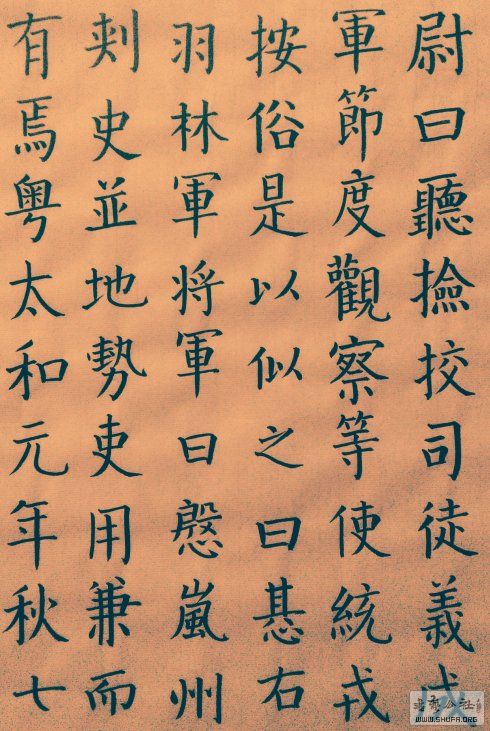 尉曰聽撿挍司徒義成
軍節度觀察等使統戎
按俗是以似之曰惎右
羽林軍将軍曰慇嵐州
刾史並地勢吏用兼而
有焉粤太和元年秋七
WWW.SHUFA.ORG